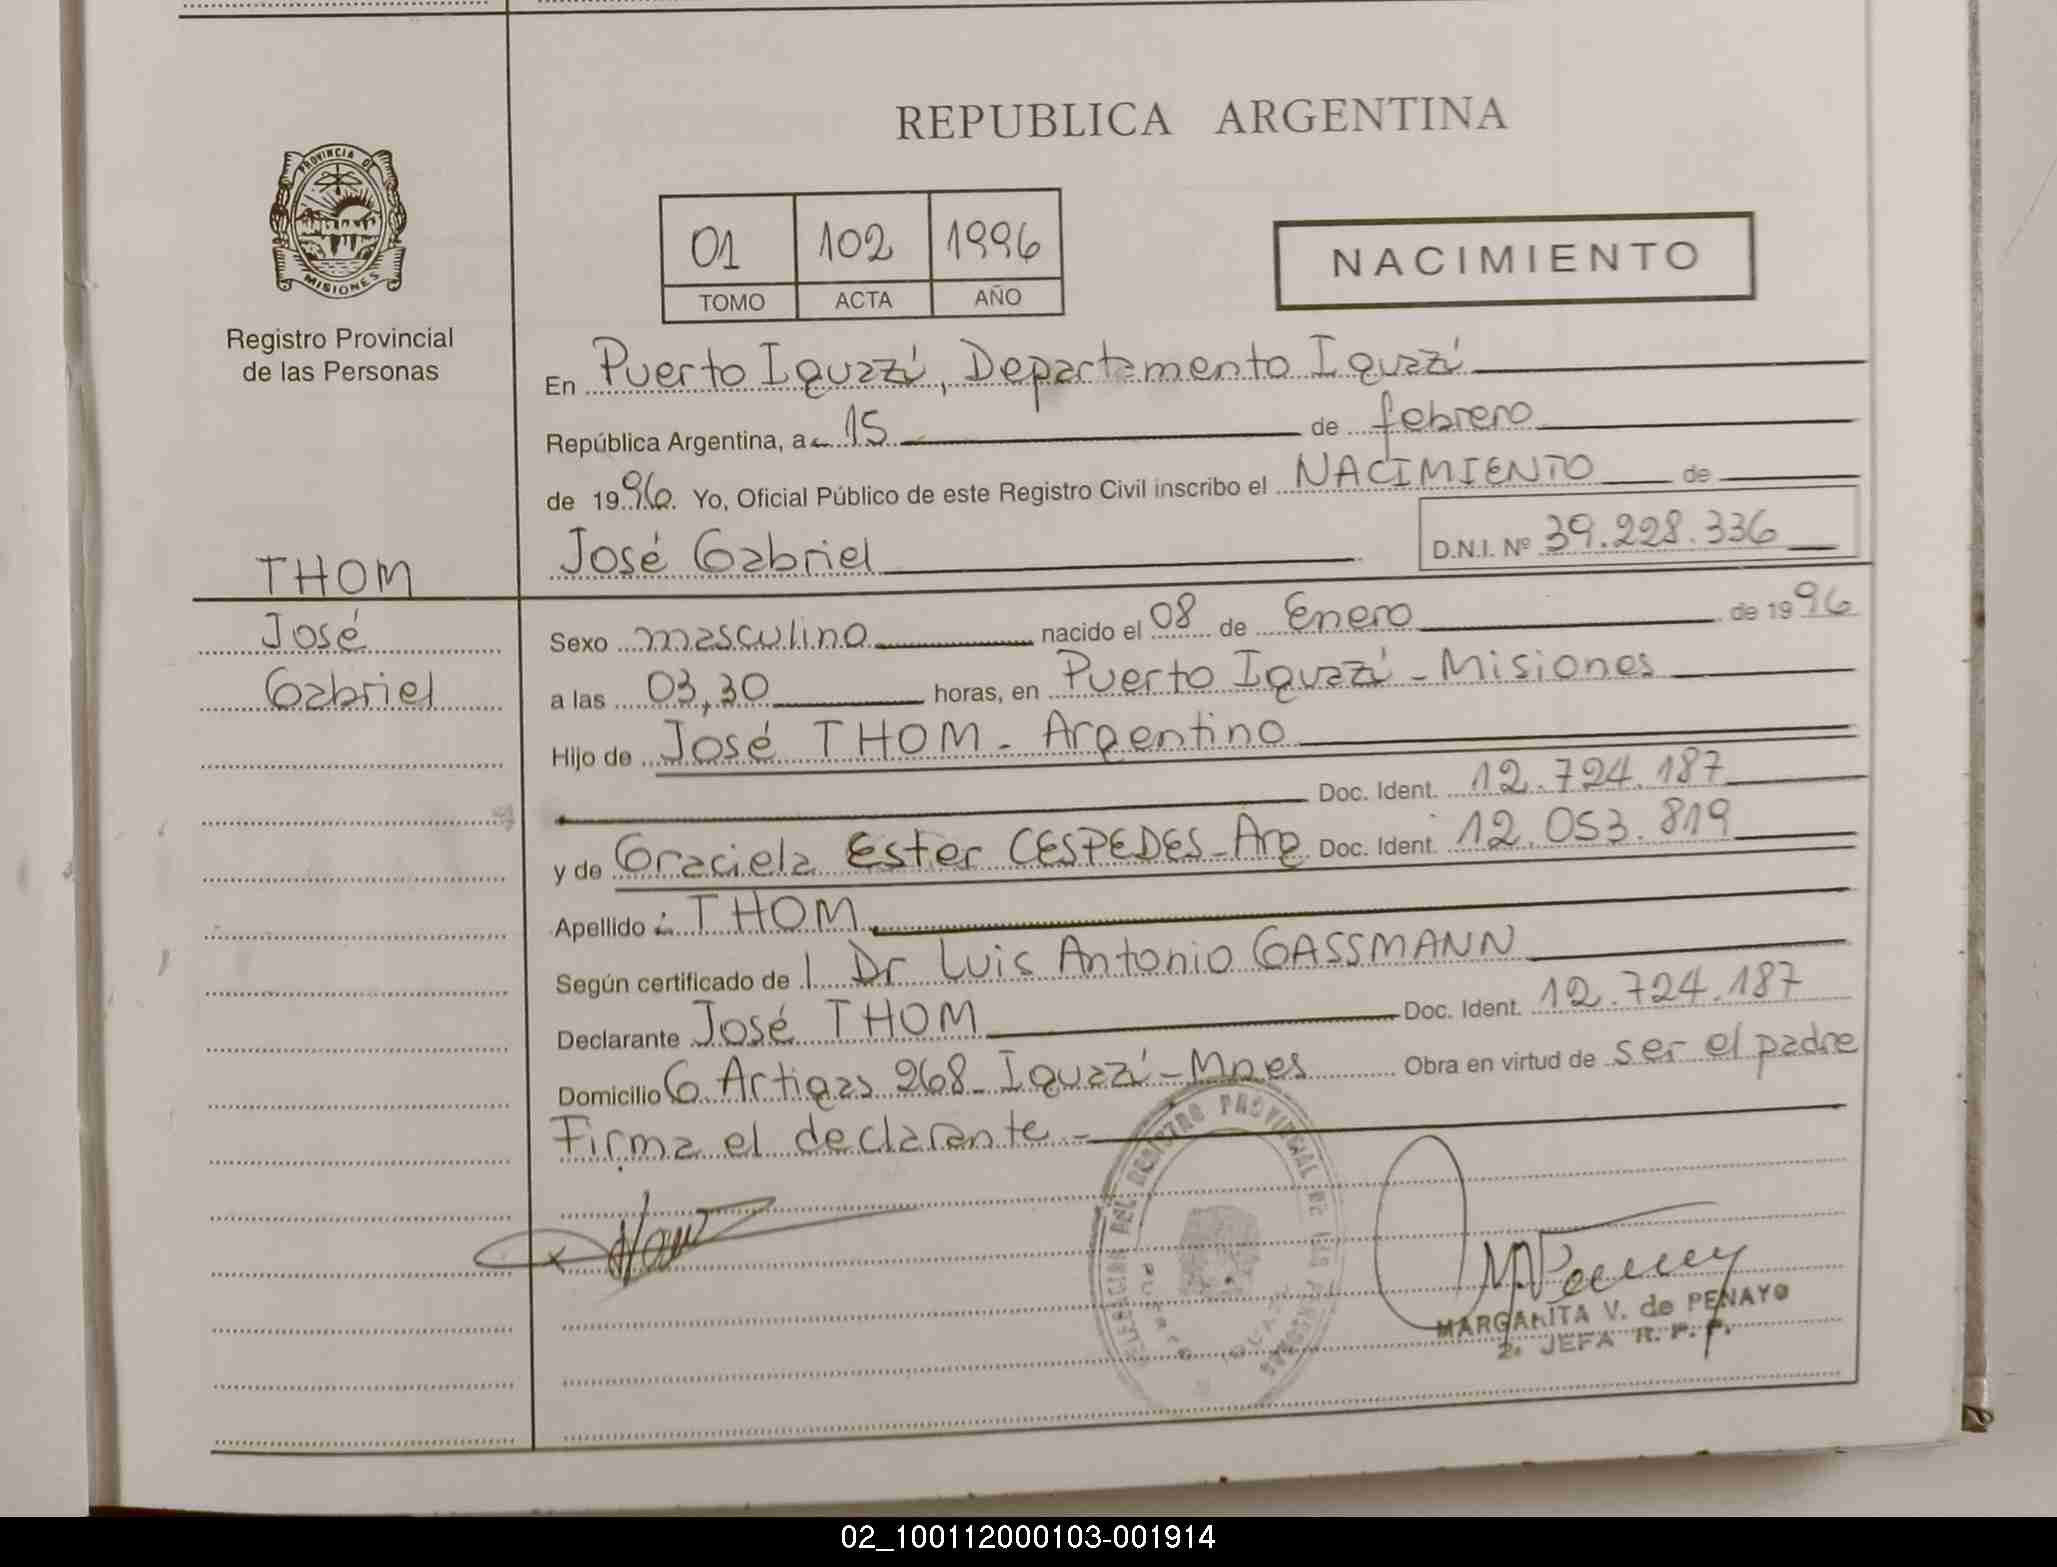 REPUBLICA ARGENTINA
PROVINCIA DE
MISIONES
Registro Provincial
de las Personas
01 102 1996
TOMO ACTA AÑO
NACIMIENTO
En Puerto Iguazú, Departamento Iguazú
República Argentina, a 15 de febrero
de 1996. Yo, Oficial Público de este Registro Civil inscribo el NACIMIENTO de
José Gabriel D.N.I. Nº 39.228.336
THOM
José
Gabriel
Sexo masculino nacido el 08 de Enero de 1996
a las 03,30 horas, en Puerto Iguazú - Misiones
Hijo de José THOM - Argentino
Doc. Ident. 12.724.187
y de Graciela Ester CESPEDES - Arg Doc. Ident. 12.053.819
Apellido : THOM
Según certificado de l Dr Luis Antonio GASSMANN
Declarante José THOM Doc. Ident. 12.724.187
Domicilio G Artigas 268 - Iguazú - Mnes Obra en virtud de ser el padre
Firma el declarante -
DEL REGISTRO PROVINCIAL DE LAS PERSONAS
PUERTO
MARGARITA V. de PENAYO
2a JEFA R. P. P.
02_100112000103-001914